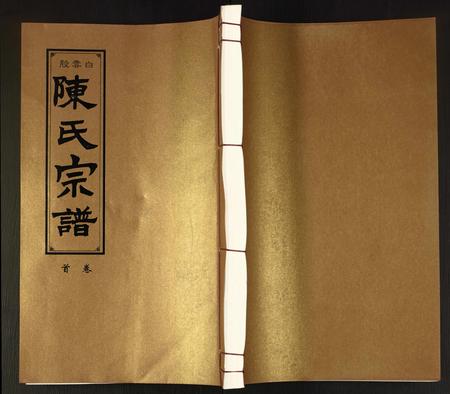 白雲
陳氏宗譜
卷首